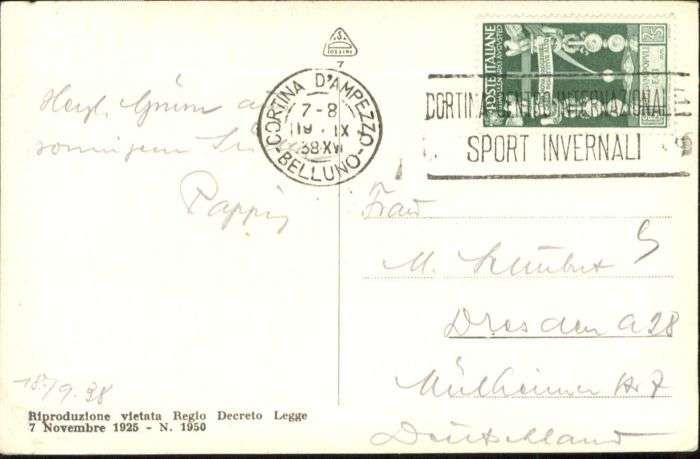 CORTINA D'AMPEZZO
7-8
19 · IX
38·XVI
-BELLUNO-
POSTE ITALIANE
CORTINA CENTRO INTERNAZIONALE
SPORT INVERNALI
Herzl. Grüße aus
sonnigem
Pappi
18./9.38
Riproduzione vietata Regio Decreto Legge
7 Novembre 1925 - N. 1950
7
Frau
M. Schubert
Dresden A 28
Mülheimer Str 7
Deutschland